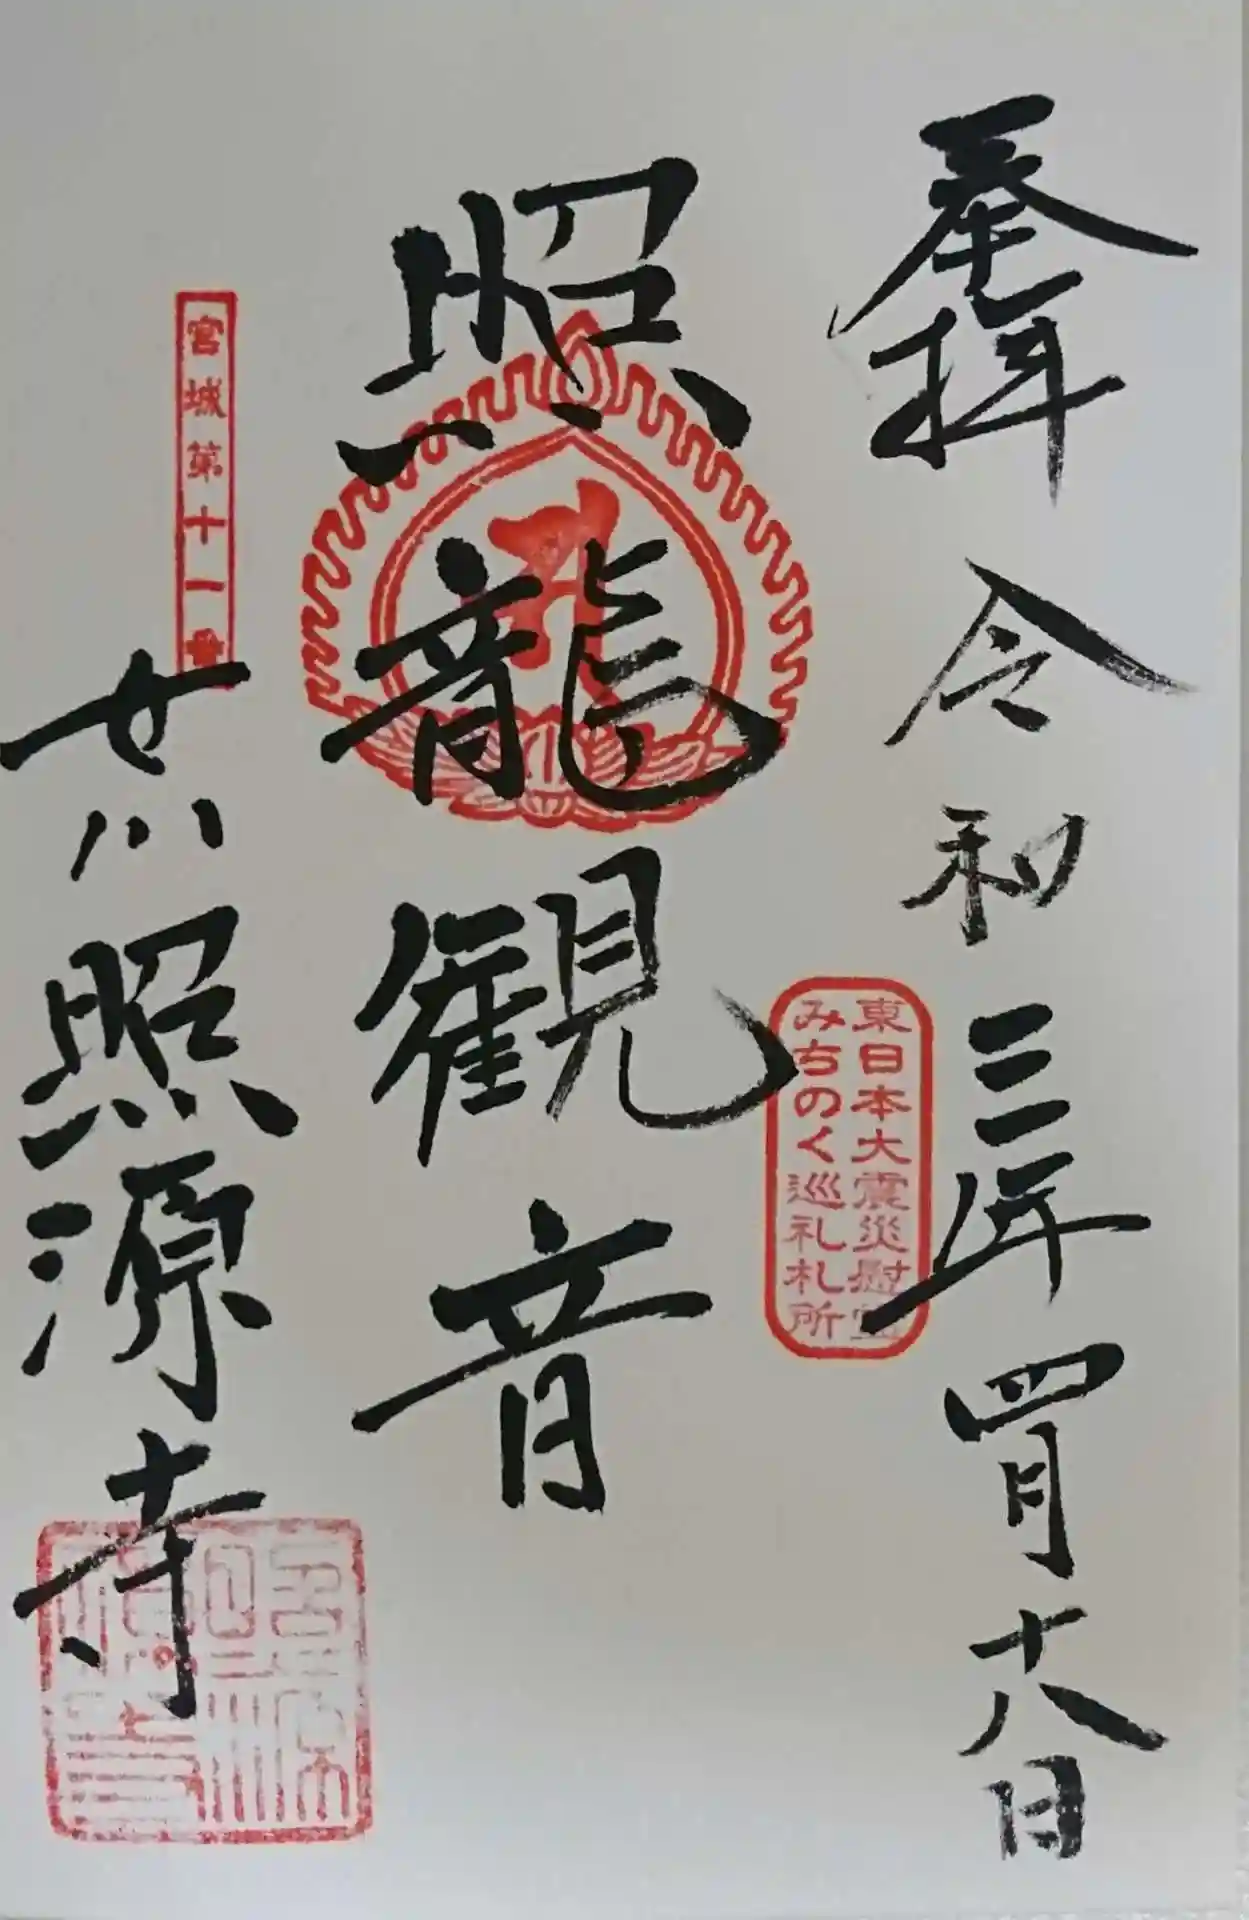 奉拝 令和三年四月十八日
東日本大震災慰霊
みちのく巡礼札所
照龍観音
宮城第十一番
照源寺